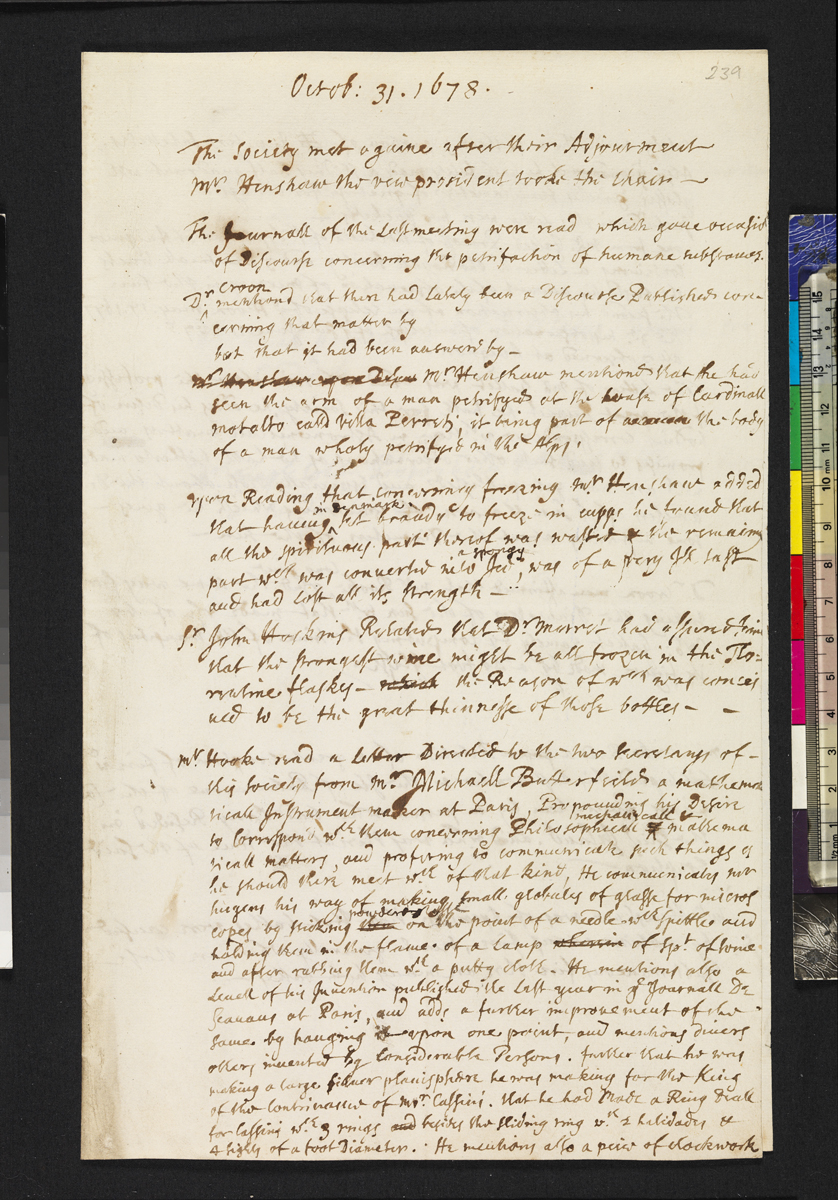 239
Octob: 31. 1678.
The Society met againe after their Adjournment
Mr. Henshaw the vice president tooke the chair
The Journall of the Last meeting were read which gave occasio
of Discourse concerning the petrifaction of humane substances.
croon
Dr ^ mentiond that there had Lately been a Discourse Published con-
cerning that matter by
but that it had been answerd by
Mr Henshaw mentiond that he had
seen the arm of a man petrifyed at the house of Cardinall
motalto calld Villa Perreti, it being part of the body
of a man wholy petrifyd in the Alps.
upon Reading that concerning freezing Mr Henshaw added
in denmark
that having ^ set brandy to freeze in cupps he found that
all the spirituous part therof was wasted & the remaining
a spongy
part wch was converted into Ice, was of a very Ill tast
and had lost all its strength
Sr John Hoskins Related that Dr Merret had assured him
that the strongest wine might be all frozen in the Flo-
rentine flasks - which the Reason of wch was concei
ued to be the great thinnesse of those bottles -
Mr Hooke read a Letter Directed to the two Secretarys of
this society from Mr Michaell Butterfield a mathema
ticall Instrument maker at Paris, Propounding his Desire
mechanicall &
to Correspond wth them concerning Philosophicall & mathema
ticall matters, and profering to communicate such things as
he should there meet wth of that kind, He communicates mr
hugens his way of making small globules of glasse for micros
powdered glasse
copes by sticking them on the point of a needle wth spittle and
holding them in the flame of a Lamp wherein of spt of wine
and after rubbing them wth a putty cloth. He mentions also a
Levell of his Invention published the Last year in ye Journall De
Scavans at Paris, and adds a further improvement of the
same by hanging it upon one point, and mentions divers
others invented by Considerable Persons. further that he was
making a large silver planisphere he was making for the King
of the Contrivance of mr Cassini. that he had made a Ring Diall
for Cassini wth 3 rings and besides the sliding ring wth 2 halidades &
4 sights of a foot Diameter. He mentions also a peice of clockwork